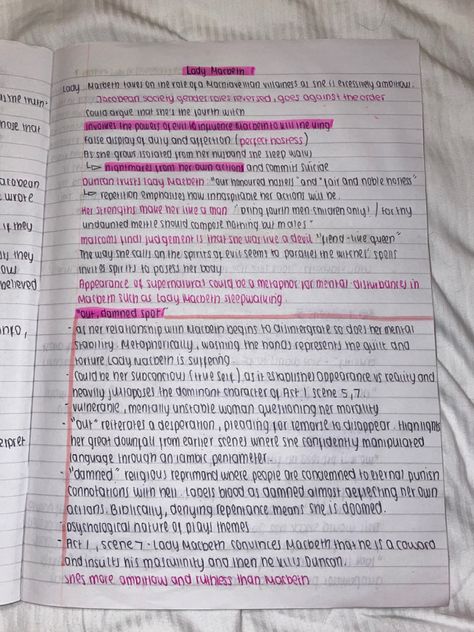 as the truth.
those that
Jacobean
wrote
if they
is they
ow
believed
Lady Macbeth
Lady Macbeth takes on the role of a Machiavellian villainess as she is excessively ambitious.
Jacobean society gender roles reversed, goes against the order
could argue that she's the fourth witch
involves the powers of evil to influence Macbeth to kill the king
False display of duty and affection (perfect hostess)
As she grows isolated from her husband she sleep walks
↳ nightmares from her own actions and commits suicide
Duncan trusts Lady Macbeth "our honoured hostess" and "fair and noble hostess"
↳ repetition emphasises how inhospitable her actions will be.
Her strengths make her like a man "bring forth men children only! / for thy
undaunted mettle should compose nothing but males"
malcoms final judgement is that she was like a devil "fiend-like queen"
The way she calls on the spirits of evil seem to parallel the witches' spells
invites spirits to posess her body
Appearance of supernatural could be a metaphor for mental disturbances in
Macbeth such as Lady Macbeth sleepwalking.
"out, damned spot"
- as her relationship with Macbeth begins to disintergrate so does her mental
stability. Metaphorically, washing the hands represents the guilt and
torture Lady Macbeth is suffering
- could be her subconcious (true self), as it establishes appearance vs reality and
heavily juxtaposes the dominant character of Act 1 scene 5,7.
- vulnerable, mentally unstable woman questioning her morality
- "out" reiterates a desperation, pleading for remorse to disappear. Highlights
her great downfall from earlier scenes where she confidently manipulated
language through an iambic pentameter.
- "damned" religious reprimand where people are condemned to eternal punish
connotations with hell. Labels blood as damned almost deflecting her own
actions. Biblically, denying repentance means she is doomed.
- psychological nature of plays themes
- Act 1, scene 7 - Lady Macbeth convinces Macbeth that he is a coward
and insults his masculinity and then he kills Duncan.
shes more ambitious and ruthless than Macbeth